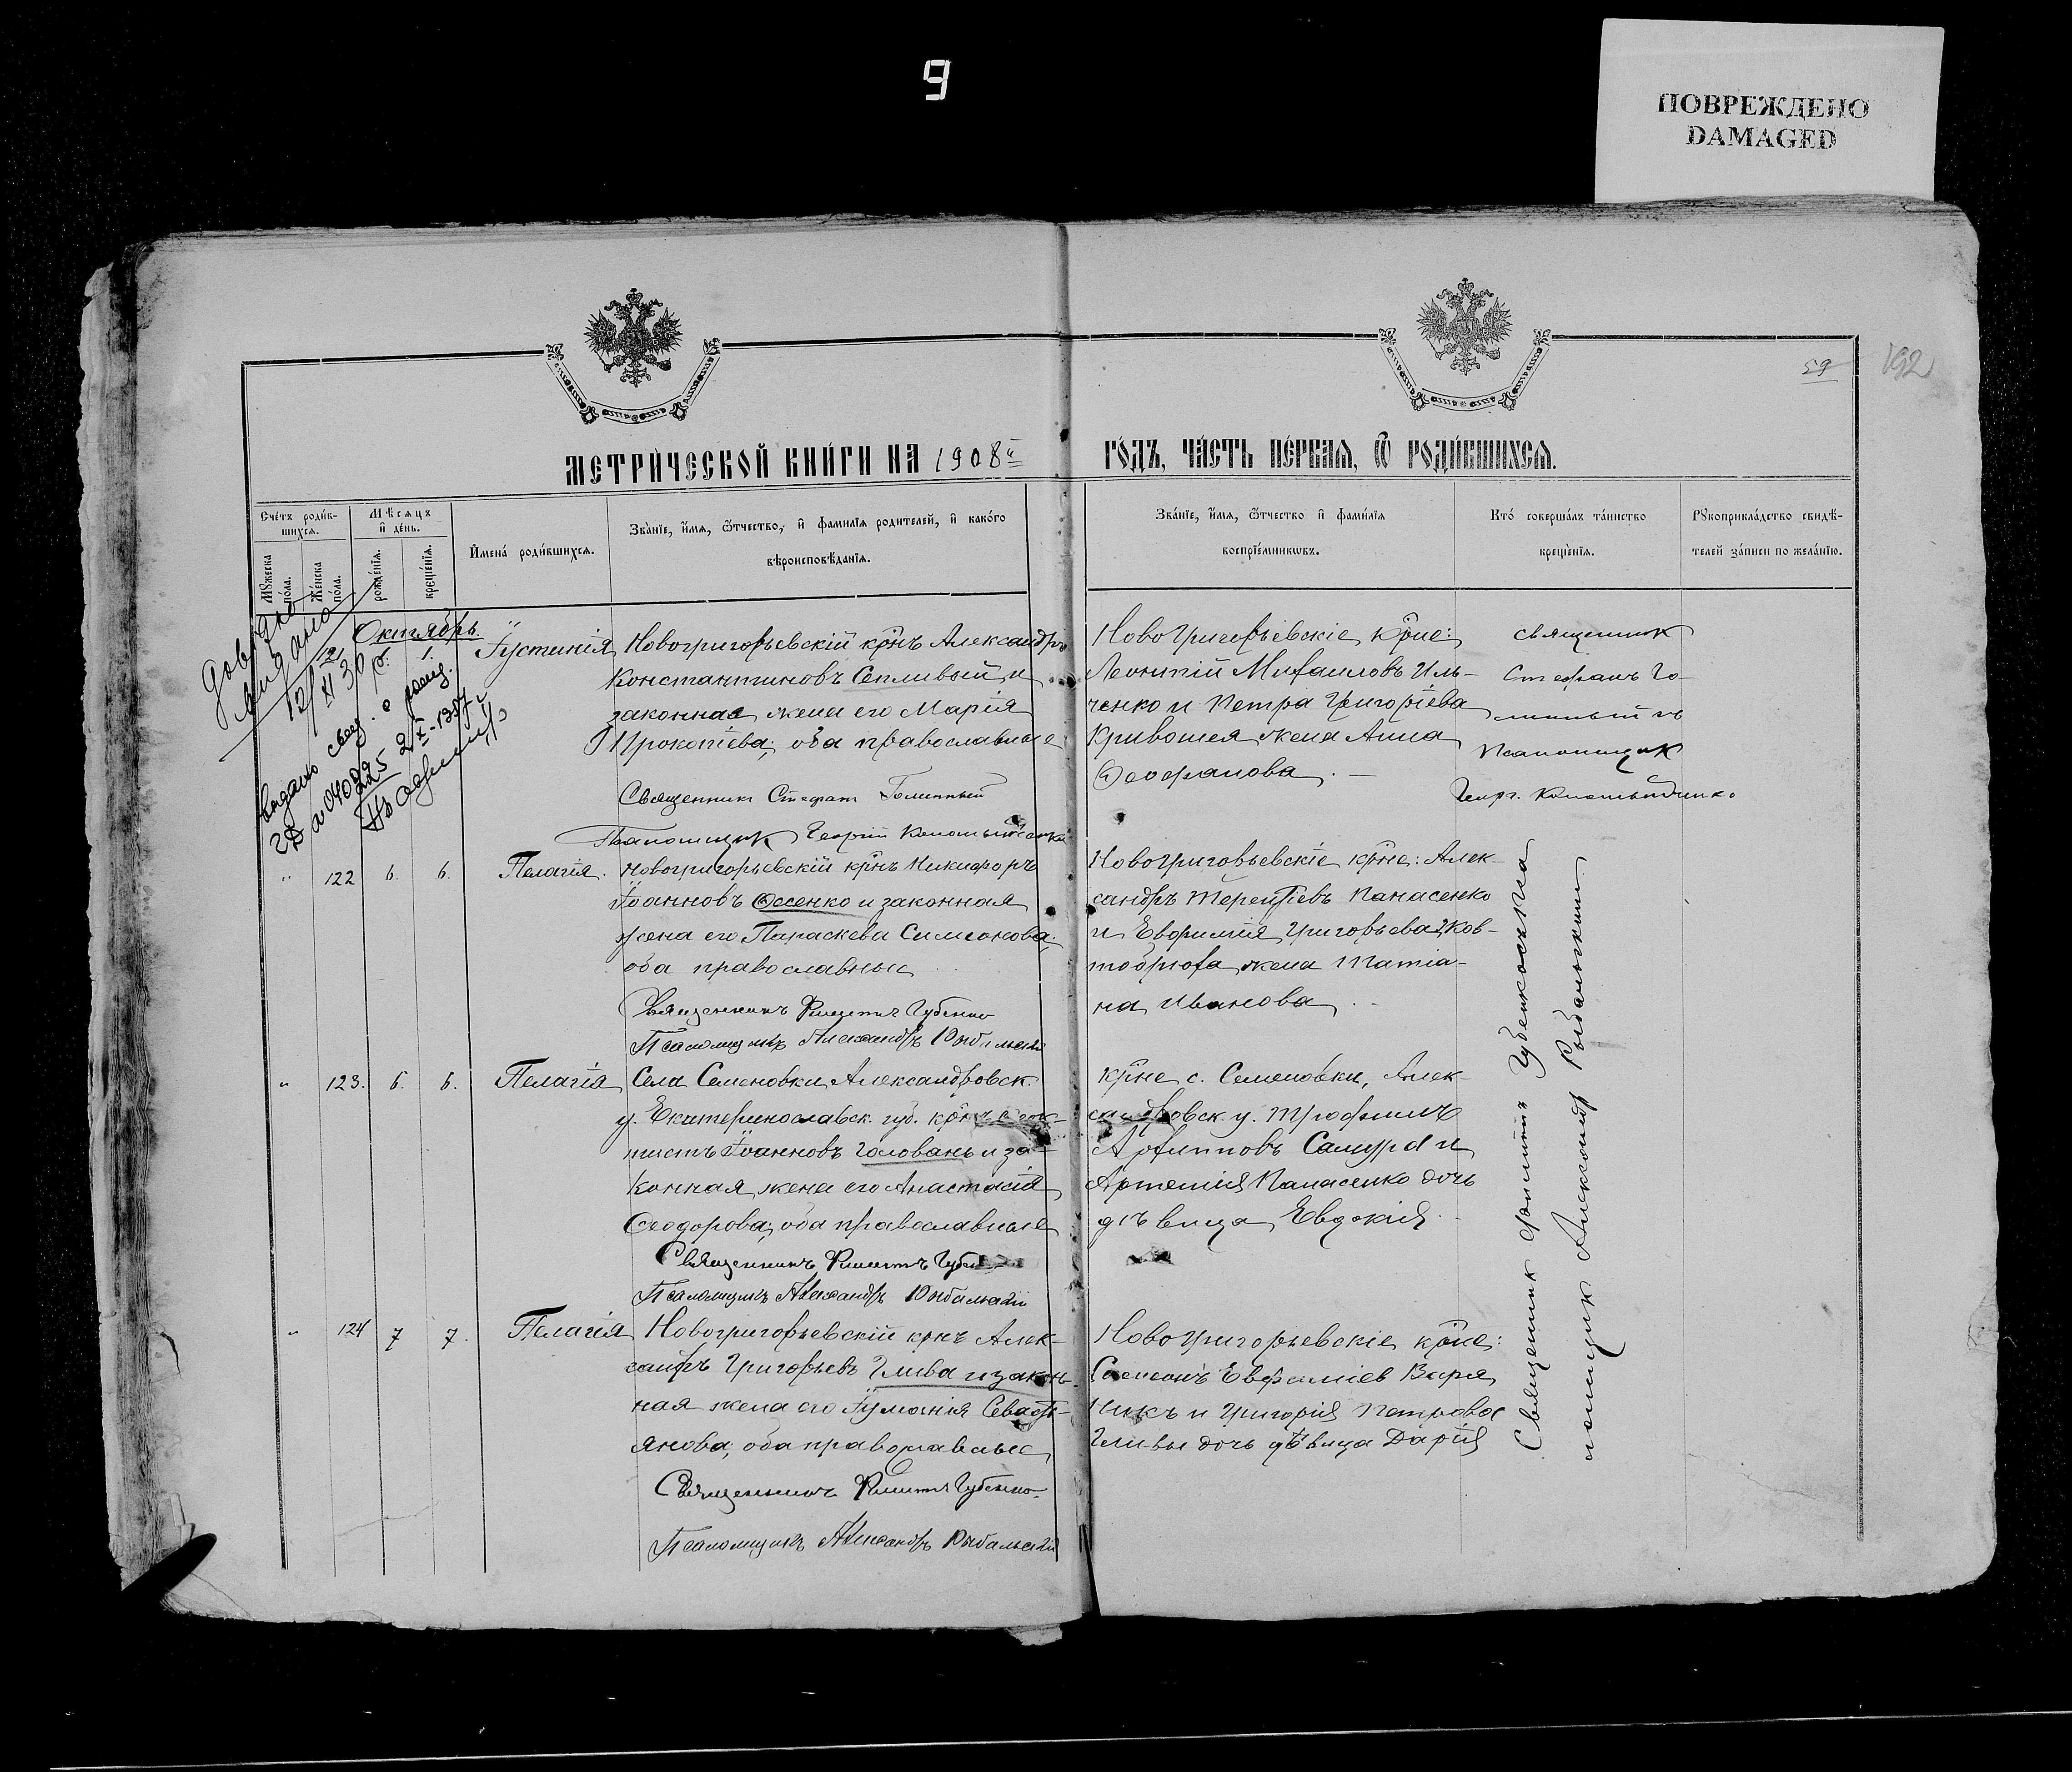 9
ПОВРЕЖДЕНО
DAMAGED
59
192
МЕТРИЧЕСКОЙ КНИГИ НА 1908й
ГОДЪ, ЧАСТЬ ПЕРВАЯ, Ѡ РОДИВШИХСЯ.
Счетъ родив-
шихся.
Мѣсяцъ
и день.
Мужеска пола.
Женска пола.
рожденія.
крещенія.
Имена родившихся.
Званіе, имя, ѿчество, и фамилія родителей, и какого
вѣроисповѣданія.
Званіе, имя, ѿчество и фамилія
воспріемниковъ.
Кто совершалъ таинство
крещенія.
Рукоприкладство свидѣ-
телей записи по желанію.
Октябрь
Іустинія
Новогригорьевскій крнъ Александръ
Константиновъ Сопливый и
законная жена его Марія
Прокопіева, оба православные
Священникъ Стефанъ
Псаломщикъ Георгій
Новогригорьевскіе крне:
Леонтій Михаиловъ Иль-
ченко и Петра Григоріева
Кривошея жена Анна
Ѳеофанова.
священник
Стефанъ Го-
Псаломщик
Георг.
выдано свид. о рожд.
122 6. 6. Пелагія.
Новогригорьевскій крнъ Никифоръ
Іоанновъ Ѳесенко и законная
жена его Параскева Симеонова,
оба православные
Священникъ Филиппъ Губенко
Псаломщикъ Александръ Рыбальскій
Новогригорьевскіе крне: Алек-
сандръ Терентіевъ Панасенко
и Евфимія Григорьева Ков-
тобрюха жена Татіа-
на Иванова.
123. 6. 6. Пелагія
Села Семеновки Александровск.
у. Екатеринославск. губ. крнъ
тистъ Іоанновъ Головань и за-
конная жена его Анастасія
Ѳеодорова, оба православные
Священникъ Филиппъ Губенко
Псаломщикъ Александръ Рыбальскій
Крне с. Семеновки, Алек-
сандровск. у. Трофимъ
Архиповъ Самура и
Артемія Панасенко дочь
дѣвица Евдокія.
124 7 7. Пелагія
Новогригорьевскій крнъ Алек-
сандръ Григорьевъ Глива и закон-
ная жена его Іуліанія Севасті-
анова, оба православные
Священникъ Филиппъ Губенко.
Псаломщикъ Александръ Рыбальскій
Новогригорьевскіе крне:
Симеонъ Евфиміев
и Григорія Петрова
Гливы дочь дѣвица Дарія
Священник Филиппъ Губенко съ Пса
ломщик Александр Рыбальскимъ